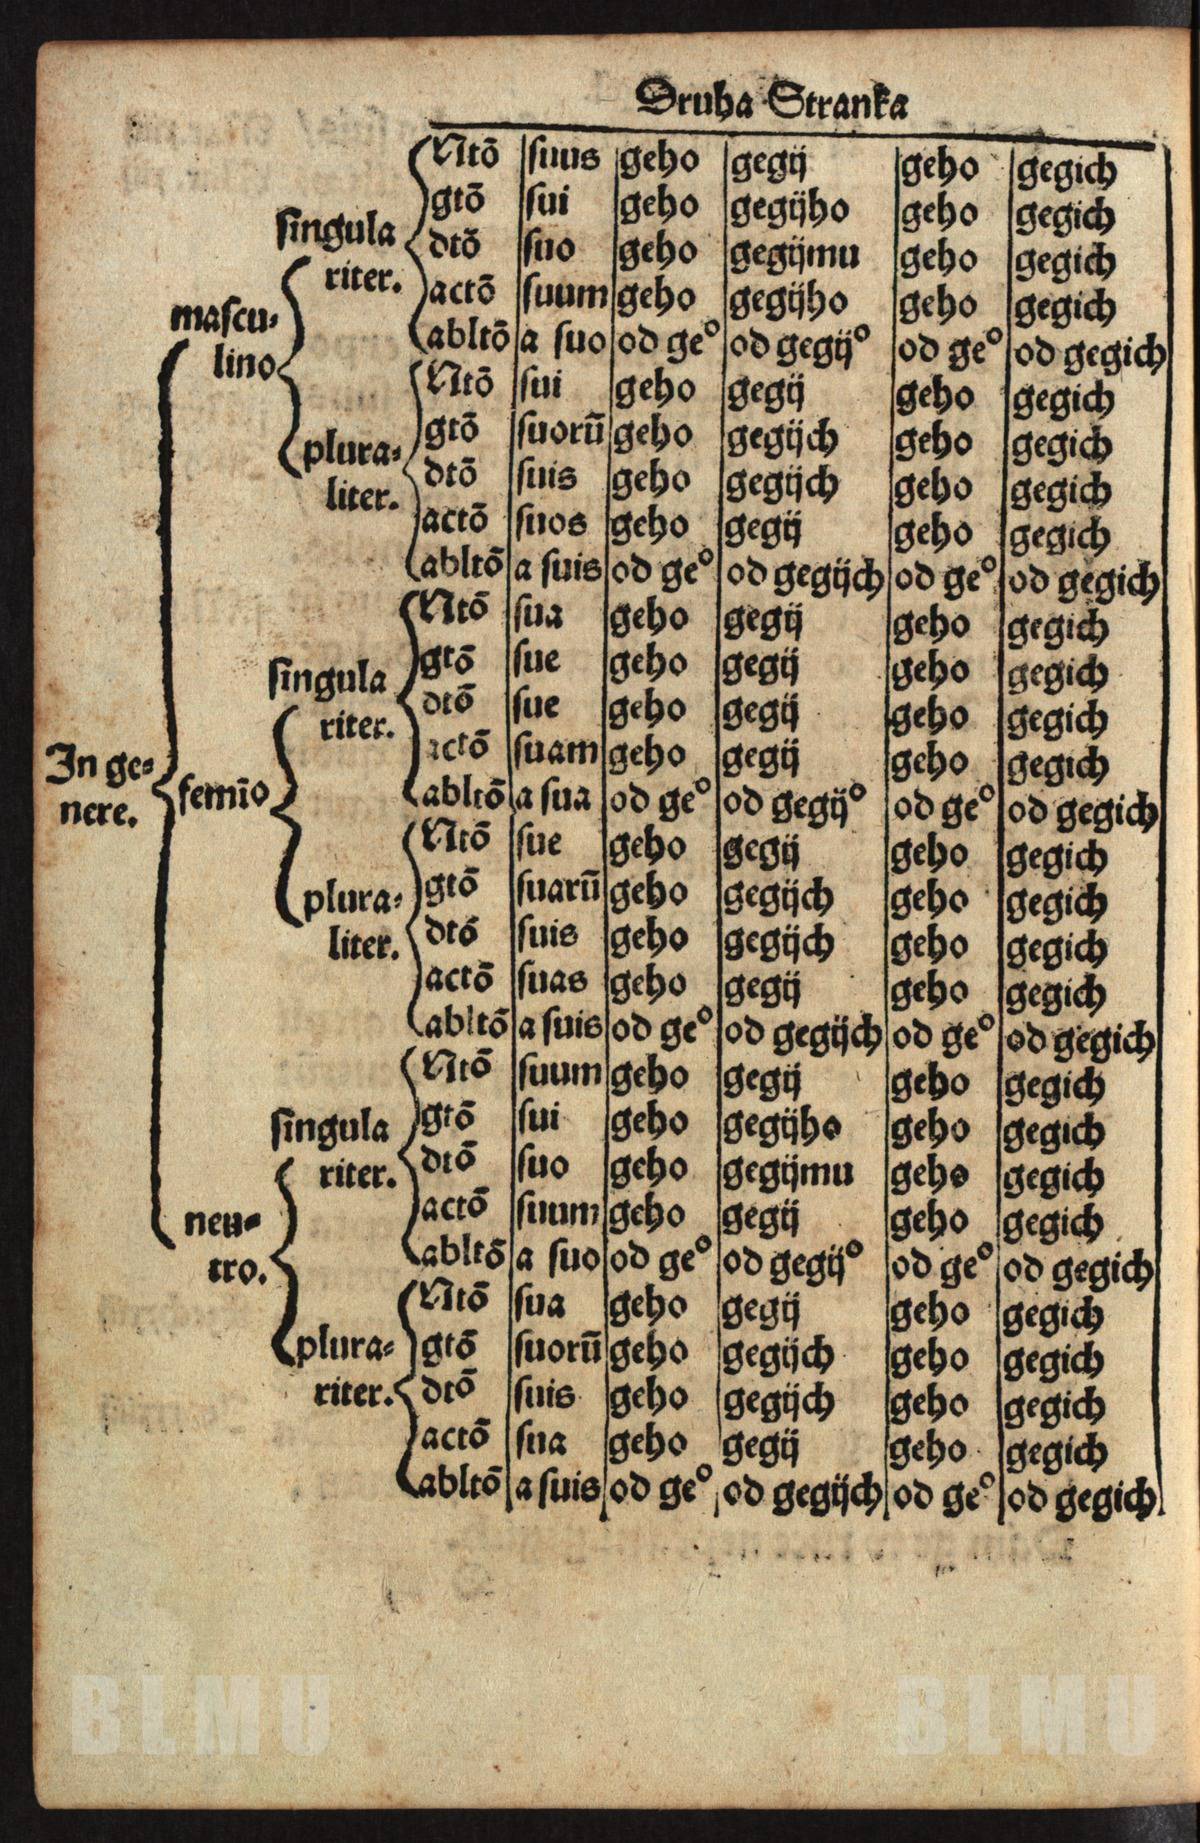 Druha Stranka
In ge⸗
nere.
maſcu⸗
lino
ſingula
riter.
Ntō ſuus geho gegij geho gegich
gtō ſui geho gegijho geho gegich
dtō ſuo geho gegijmu geho gegich
actō ſuum geho gegijho geho gegich
abltō a ſuo od ge° od gegij° od ge° od gegich
plura⸗
liter.
Ntō ſui geho gegij geho gegich
gtō ſuorū geho gegijch geho gegich
dtō ſuis geho gegijch geho gegich
actō ſuos geho gegij geho gegich
abltō a ſuis od ge° od gegijch od ge° od gegich
femīo
ſingula
riter.
Ntō ſua geho gegij geho gegich
gtō ſue geho gegij geho gegich
dtō ſue geho gegij geho gegich
actō ſuam geho gegij geho gegich
abltō a ſua od ge° od gegij° od ge° od gegich
plura⸗
liter.
Ntō ſue geho gegij geho gegich
gtō ſuarū geho gegijch geho gegich
dtō ſuis geho gegijch geho gegich
actō ſuas geho gegij geho gegich
abltō a ſuis od ge° od gegijch od ge° od gegich
neu⸗
tro.
ſingula
riter.
Ntō ſuum geho gegij geho gegich
gtō ſui geho gegijho geho gegich
dtō ſuo geho gegijmu geho gegich
actō ſuum geho gegij geho gegich
abltō a ſuo od ge° od gegij° od ge° od gegich
plura⸗
riter.
Ntō ſua geho gegij geho gegich
gtō ſuorū geho gegijch geho gegich
dtō ſuis geho gegijch geho gegich
actō ſua geho gegij geho gegich
abltō a ſuis od ge° od gegijch od ge° od gegich
BLMU BLMU